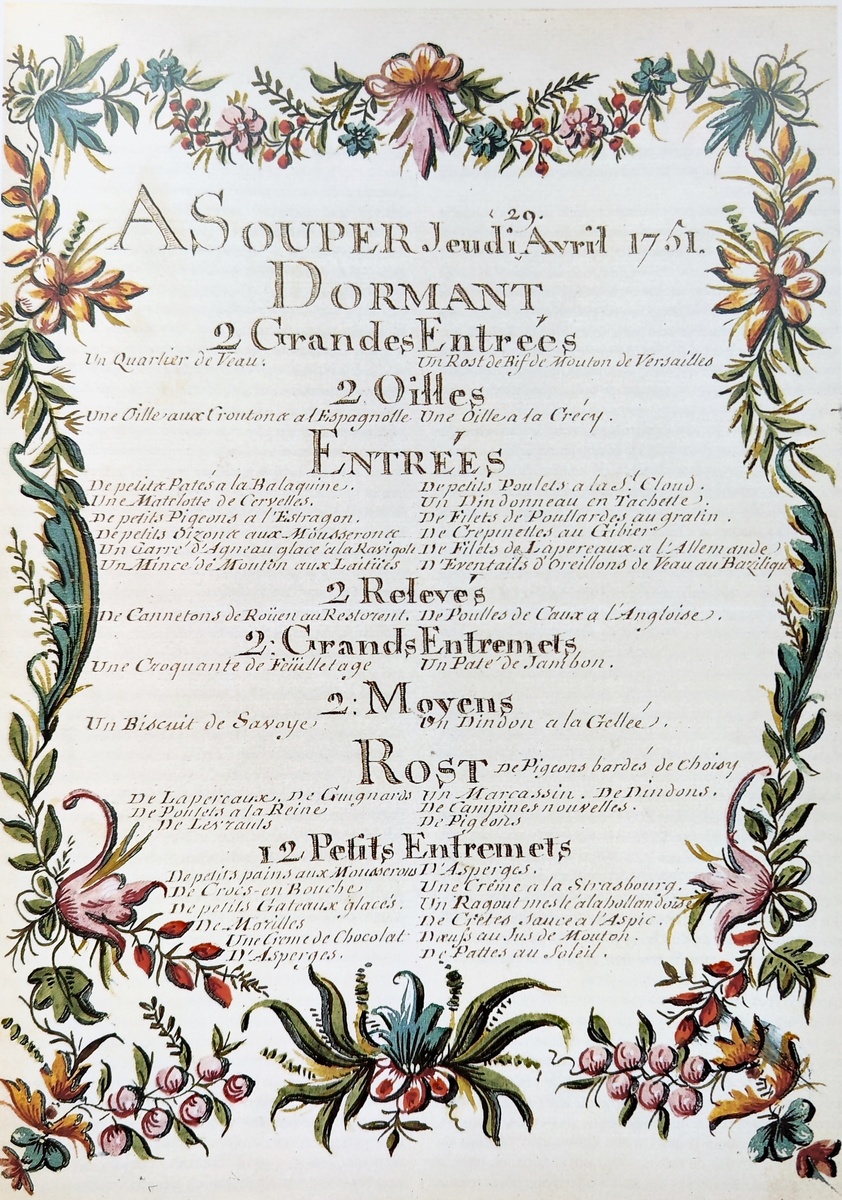 A SOUPER Jeudi 29. Avril 1751.
DORMANT
2 Grandes Entrées
Un Quartier de Veau. Un Rost de Bif de Mouton de Versailles
2 Oilles
Une Oille aux Croutons a l'Espagnolle Une Oille a la Crécy.
ENTRÉES
De petits Patés a la Balaquine. De petits Poulets a la St. Cloud.
Une Matelotte de Cervelles. Un Dindonneau en Tachette.
De petits Pigeons a l'Estragon. De Filets de Poullardes au gratin.
De petits Oizons aux Mousserons De Crepinelles au Gibier
Un Carré d'Agneau glacé a la Ravigote De Filets de Lapereaux a l'Allemande
Un Mince de Mouton aux Laitües D'Eventails d'Oreillons de Veau au Bazilique
2 Relevés
De Cannetons de Roüen au Restorent. De Poulles de Caux a l'Angloise.
2: Grands Entremets
Une Croquante de Feüilletage Un Paté de Jambon.
2: Moyens
Un Biscuit de Savoye Un Dindon a la Gellée.
ROST De Pigeons bardés de Choisy
De Lapereaux. De Guignards Un Marcassin. De Dindons.
De Poulets a la Reine De Campines nouvelles.
De Levrauts De Pigeons
12 Petits Entremets
De petits pains aux Mousserons D'Asperges.
De Crocs-en Bouche Une Crême a la Strasbourg.
De petits Gateaux glacés. Un Ragout meslé a la hollandoise
De Morilles De Crêtes sauce a l'Aspic.
Une Crême de Chocolat Dœufs au Jus de Mouton.
D'Asperges. De Pattes au Soleil.